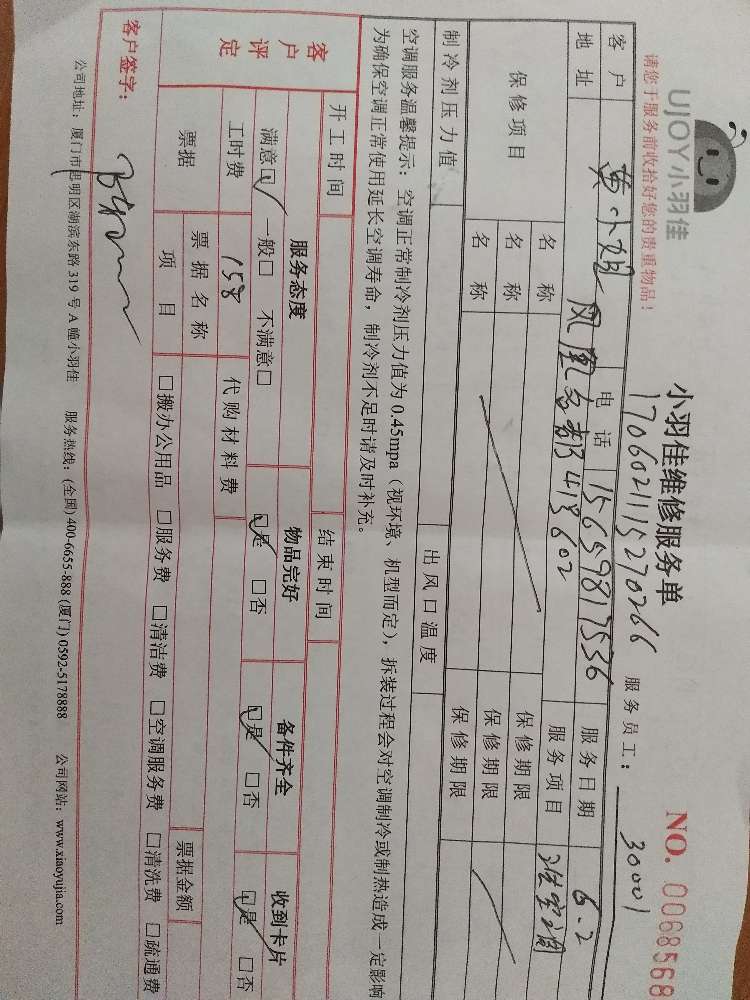 UJOY小羽佳
请您于服务前收拾好您的贵重物品！
小羽佳维修服务单
NO. 0068568
170602111527026 6 服务员工：30001
客户 黄小姐 电话 15659817536 服务日期 6.2
地址 凤凰名都3413602 服务项目 洗空调
保修项目 名称 保修期限
名称 保修期限
名称 保修期限
制冷剂压力值 出风口温度
空调服务温馨提示：空调正常制冷剂压力值为 0.45mpa（视环境、机型而定），拆装过程会对空调制冷或制热造成一定影响
为确保空调正常使用延长空调寿命，制冷剂不足时请及时补充。
开工时间 结束时间
客户评定 服务态度 物品完好 备件齐全 收到卡片
满意☑ 一般□ 不满意□ ☑是 □否 ☑是 □否 ☑是 □否
工时费 158 代购材料费
票据 票据名称 票据金额
项目 □搬办公用品 □服务费 □清洁费 □空调服务费 □清洗费 □疏通费
客户签字：
公司地址：厦门市思明区湖滨东路 319 号 A 幢小羽佳 服务热线：(全国) 400-6655-888 (厦门) 0592-5178888 公司网站：www.xiaoyujia.com